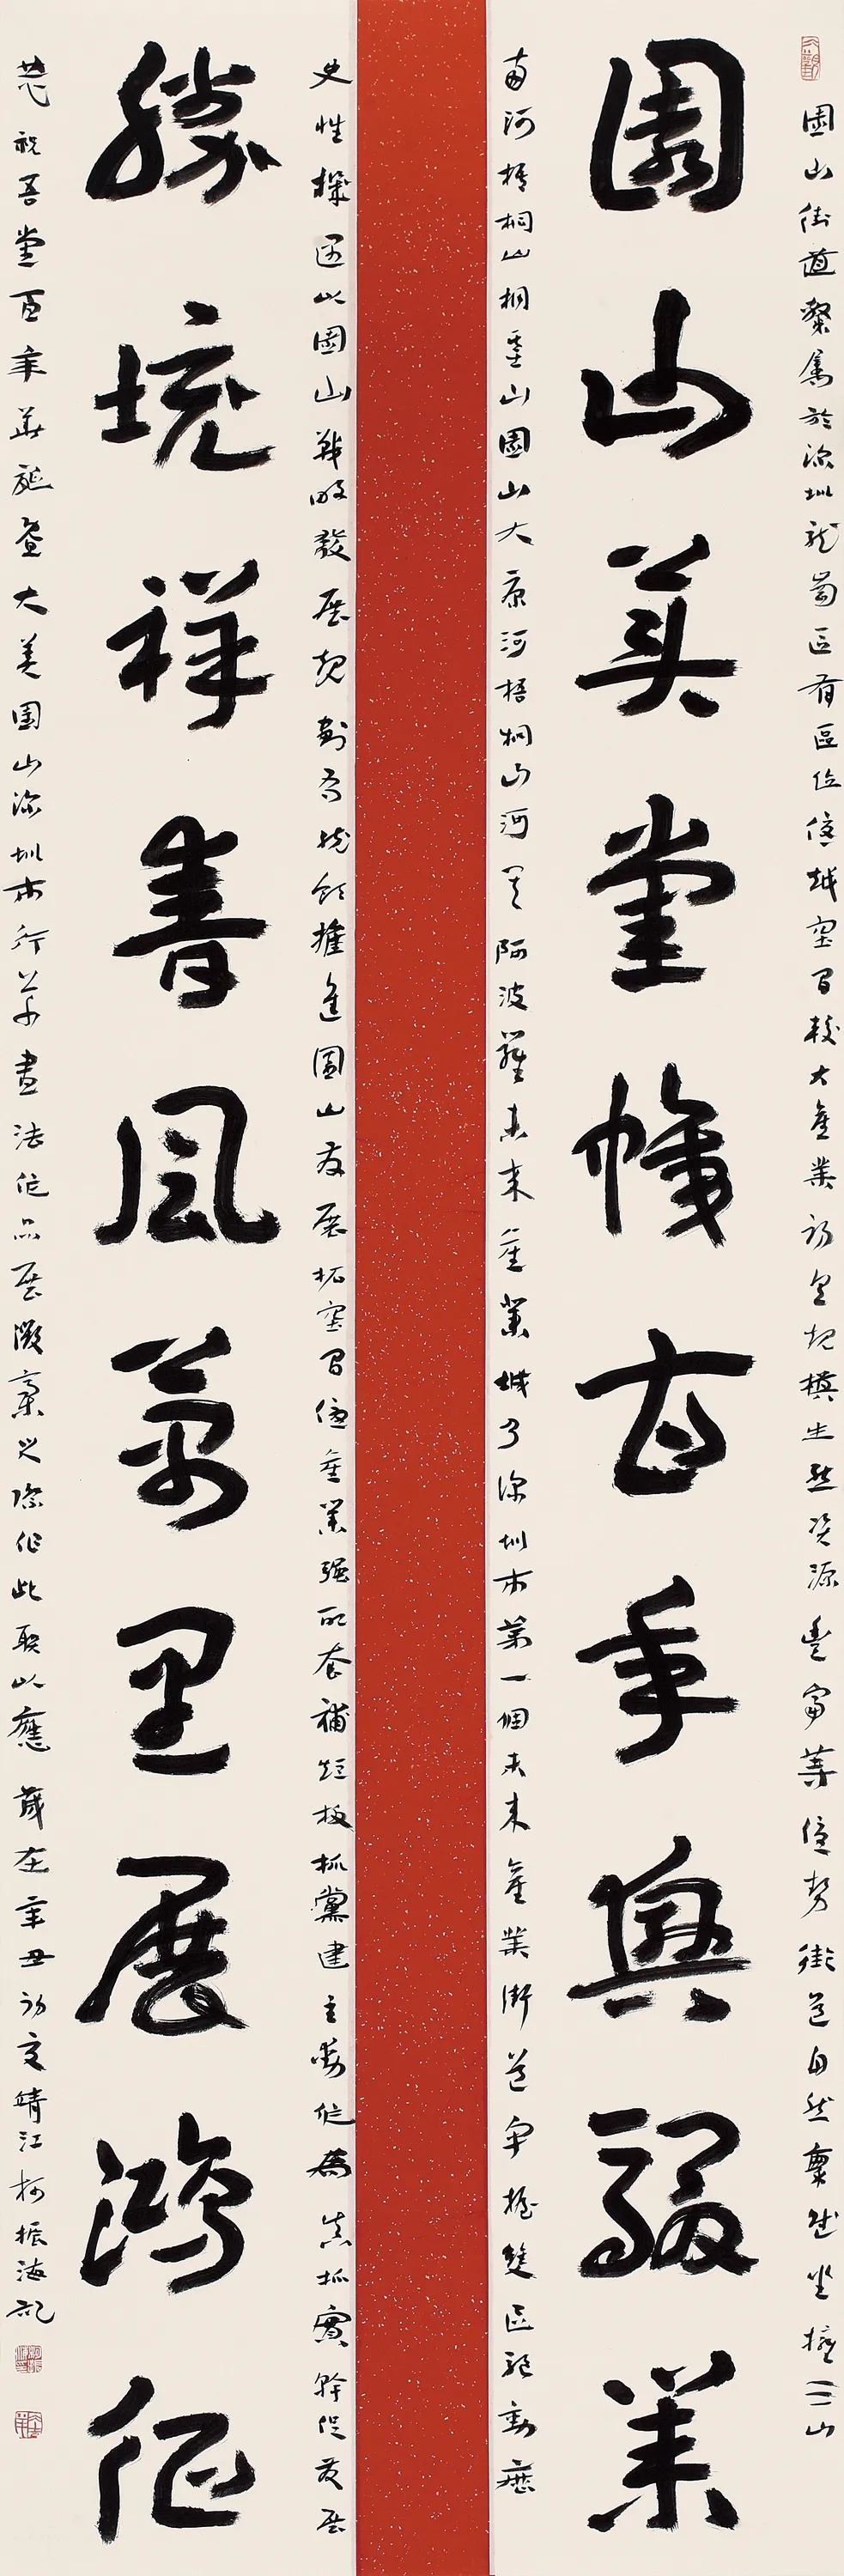 園山街道隸屬於深圳龍崗區有區位優越空間較大產業初具規模生態資源豐富等優勢街道自然稟賦坐擁三山
園山英堂幟百年興駿業
兩河梧桐山桐 山園山大康河梧桐山河 阿波羅未來產業城乃深圳市第一個未來產業街道牢握雙區驅動歷
史性機遇以園山戰略發展規劃為統領推進園山發展拓空間優產業強配套補短板抓黨建主動作為真抓實幹促發展
勝境祥書風萬里展鴻征
恭祝吾黨百年華誕暨大美園山深圳市行草書法作品展徵稿之際作此聯以應歲在辛丑初夏晴江柯振海記